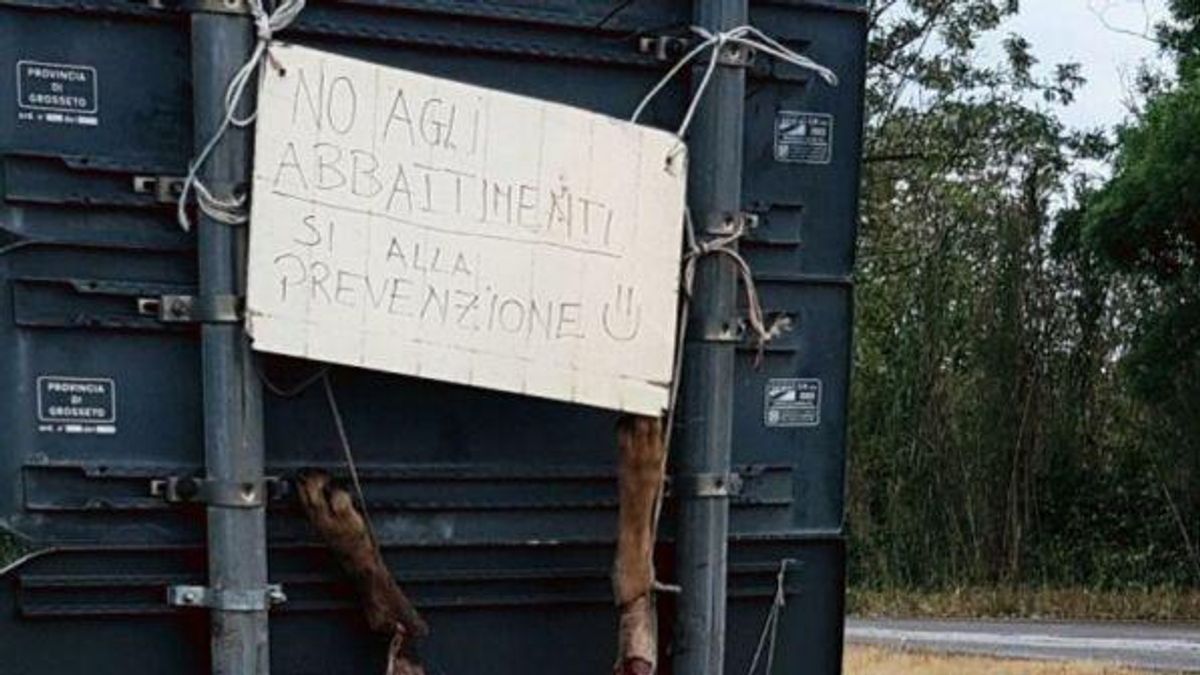 PROVINCIA
DI
GROSSETO
NO AGLI
ABBATTIMENTI
SI ALLA
PREVENZIONE
PROVINCIA
DI
GROSSETO